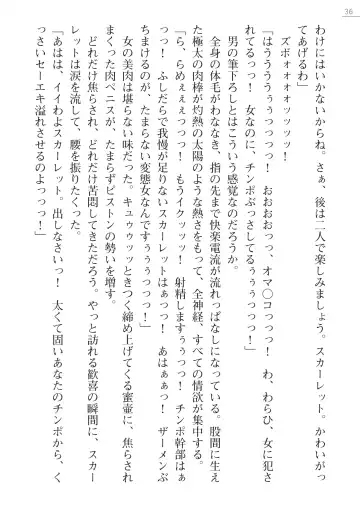 36
わけにはいかないからね。さぁ、後は二人で楽しみましょう。スカーレット。かわいがっ
てあげるわ」
　ズボォォォォッッッッ！
「はぅぅぅぅぅっっっっっ！　おおおおっっっ、オマ〇コっっっ！　わ、わらひ、女に犯さ
れてるっっ！　女なのに、チンポぶっさしてるぅぅぅっっっっ！」
　男の筆下ろしとはこういう感覚なのだろうか。
　全身の体毛がわななき、指の先まで快楽電流が流れっぱなしになっている。股間に生え
た極太の肉棒が灼熱の太陽のような熱さをもって、全神経、すべての情欲が集中する。
「ら、らめぇぇぇっっっっ！　もうイクッッッ！　射精しますぅぅっっ！　チンポ幹部はぁ
っっっ！　ふしだらで我慢が足りないスカーレットはぁっっ！　あはぁぁっ！　ザーメンぶ
ちまけるのが、たまらない変態女なんですぅぅぅっっっっ！」
　女の美肉は堪らない味だった。キュゥゥッッときつく締め上げてくる蜜壷に、焦らされ
まくった肉ペニスが、たまらずピストンの勢いを増す。
　どれだけ焦らされ、どれだけ苦悶してきただろう。やっと訪れる歓喜の瞬間に、スカー
レットは涙を流して、腰を振りたくった。
「あはは、イイわよスカーレット。出しなさいっ！　太くて固いあなたのチンポから、く
っさいセーエキ溢れさせるのよっっっ！」